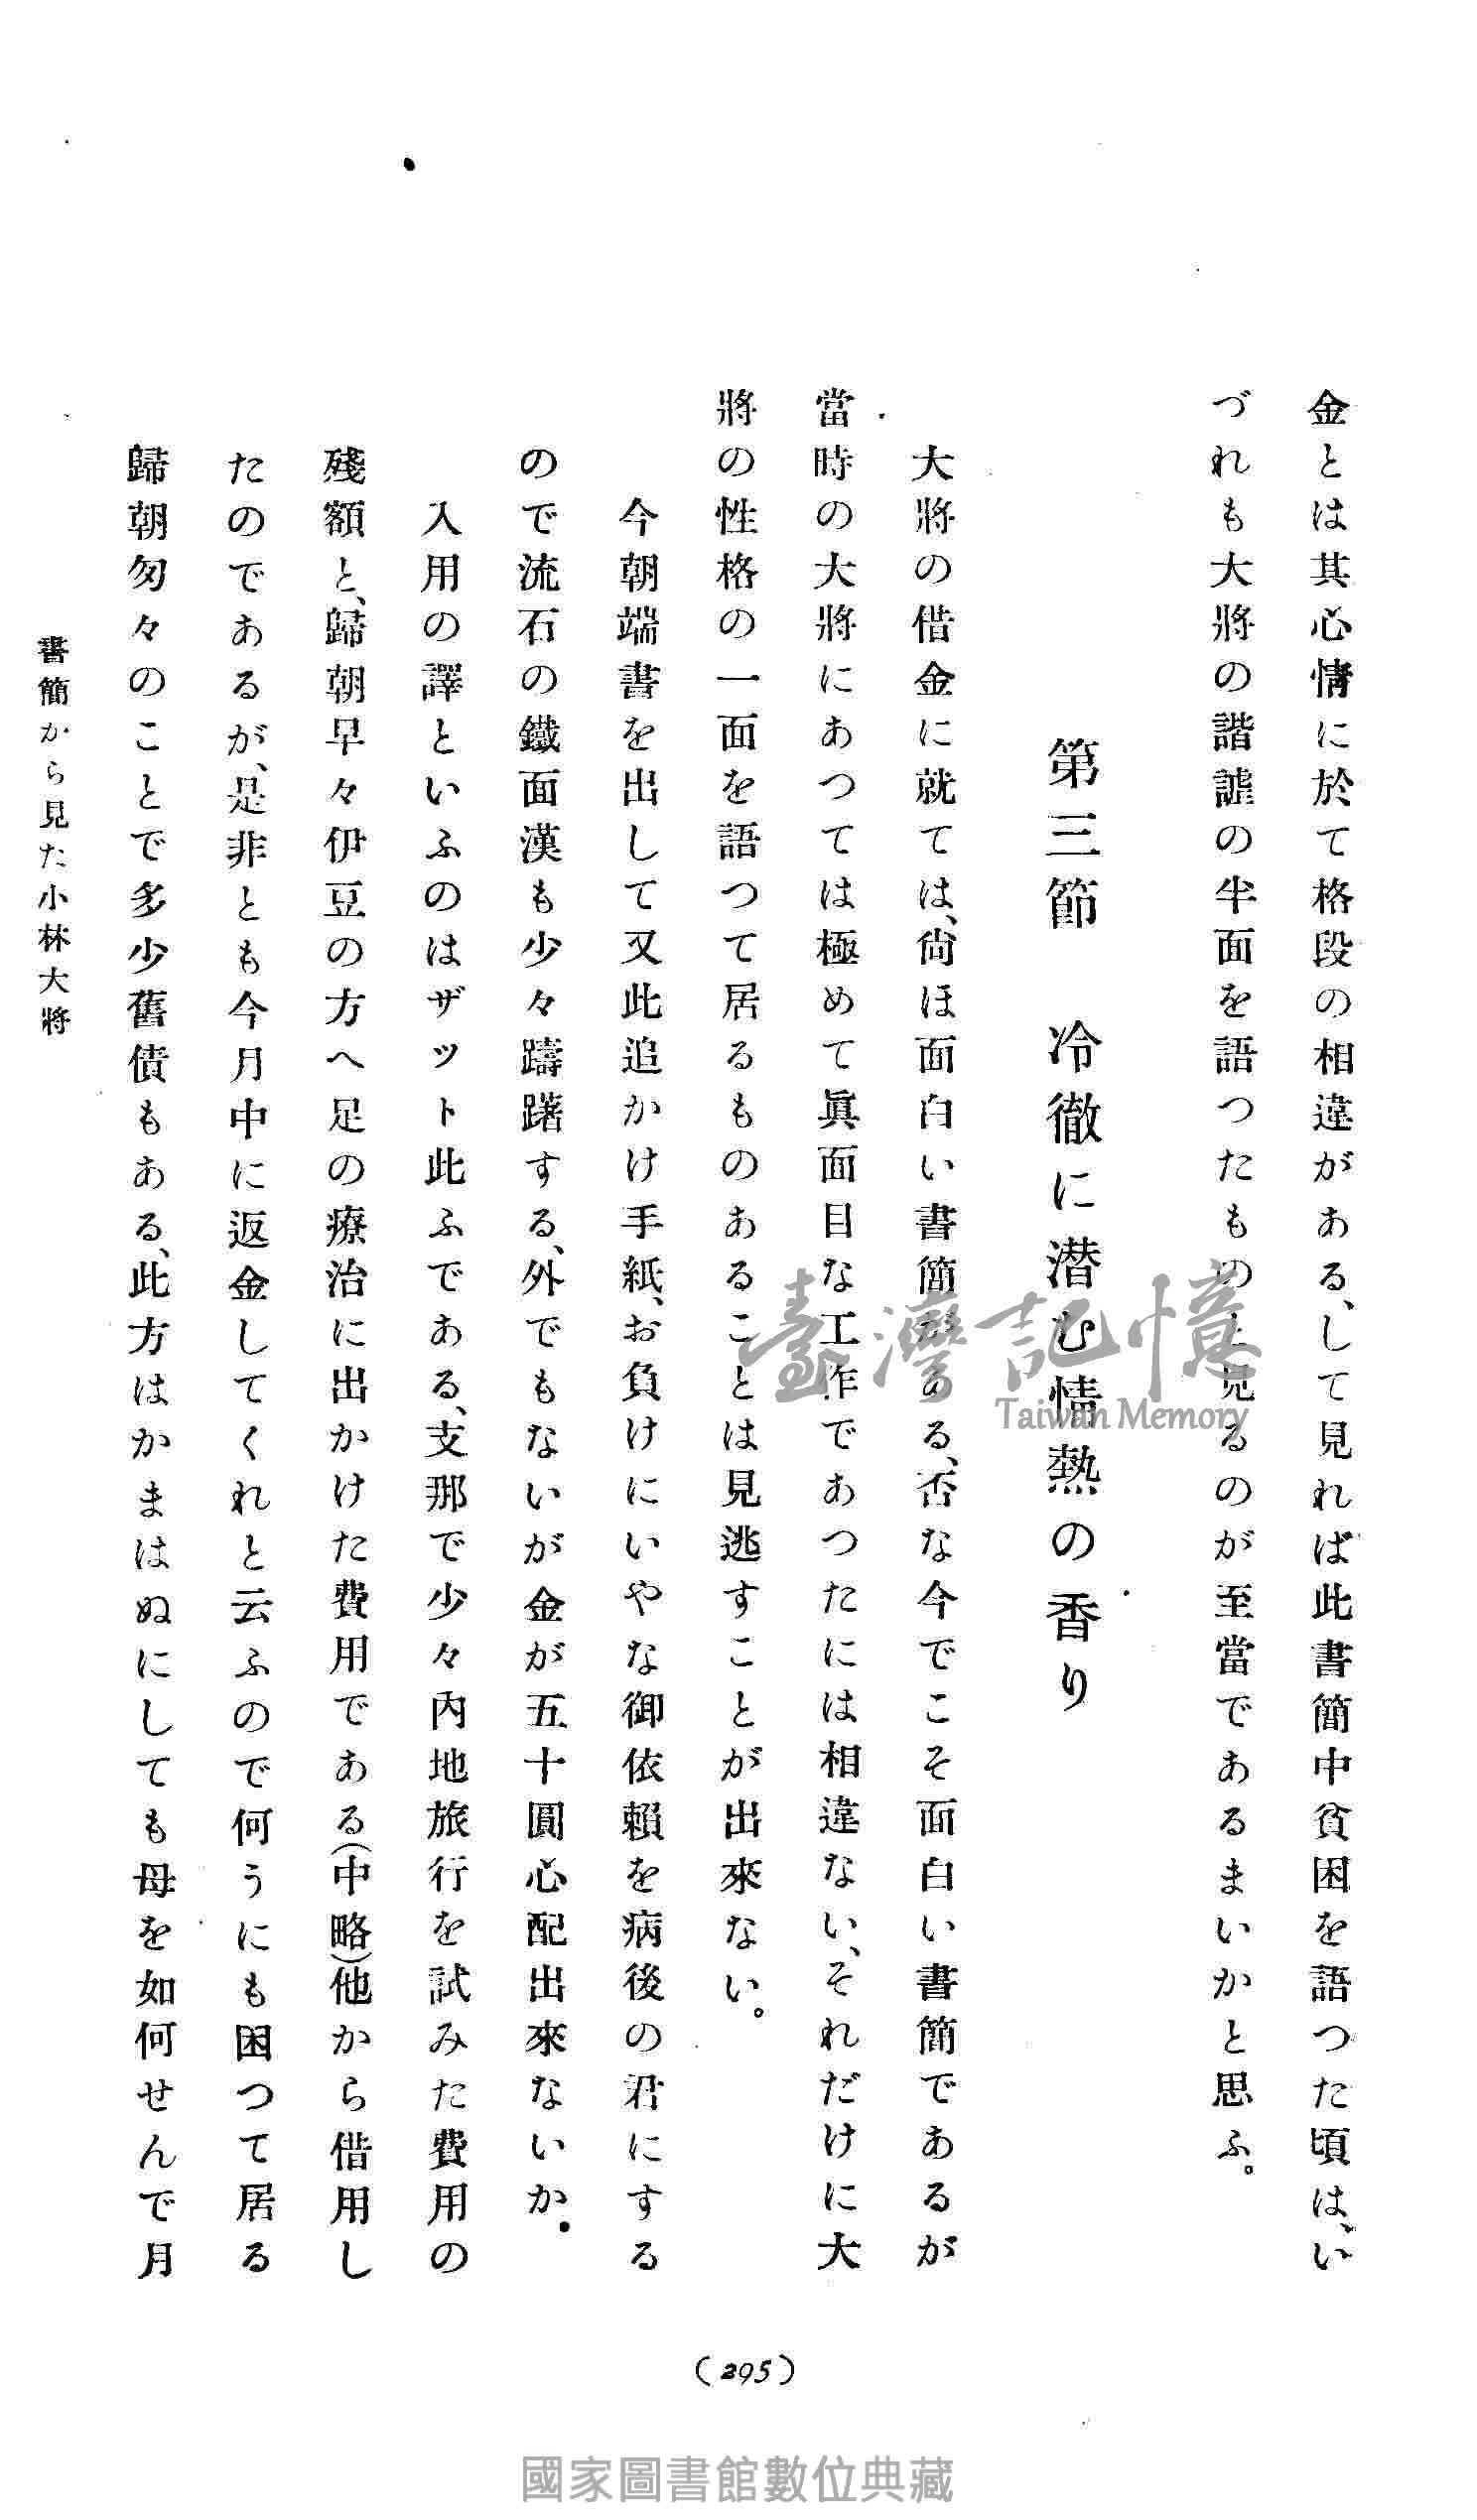 金とは其心情に於て格段の相違がある、して見れば此書簡中貧困を語つた頃は、い
づれも大將の諧謔の半面を語つたものと見るのが至當であるまいかと思ふ。
第三節　冷徹に潜む情熱の香り
大將の借金に就ては、尙ほ面白い書簡がある、否な今でこそ面白い書簡であるが
當時の大將にあつては極めて眞面目な工作であつたには相違ない、それだけに大
將の性格の一面を語つて居るものあることは見逃すことが出來ない。
今朝端書を出して又此追かけ手紙、お負けにいやな御依賴を病後の君にする
ので流石の鐵面漢も少々躊躇する、外でもないが金が五十圓心配出來ないか。
入用の譯といふのはザット此ふである、支那で少々內地旅行を試みた費用の
殘額と、歸朝早々伊豆の方へ足の療治に出かけた費用である(中略)他から借用し
たのであるが、是非とも今月中に返金してくれと云ふので何うにも困つて居る
歸朝匆々のことで多少舊債もある、此方はかまはぬにしても母を如何せんで月
書簡から見た小林大將
(295)
臺灣記憶
Taiwan Memory
國家圖書館數位典藏